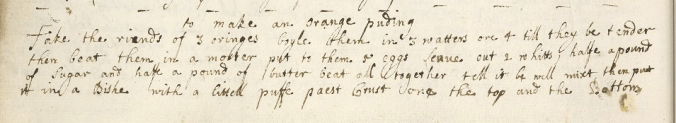 to make an orange puding
Take the riends of 3 oringes boyle them in 3 watters ore 4 till they be tender
then beat them in a morter put to them 8 eggs leaue out 2 whitts halfe a pound
of sugar and halfe a pound of butter beat all together tell it be well mixt then put
it in a Dishe with a littell puffe paest Crust one the top and the Bottom